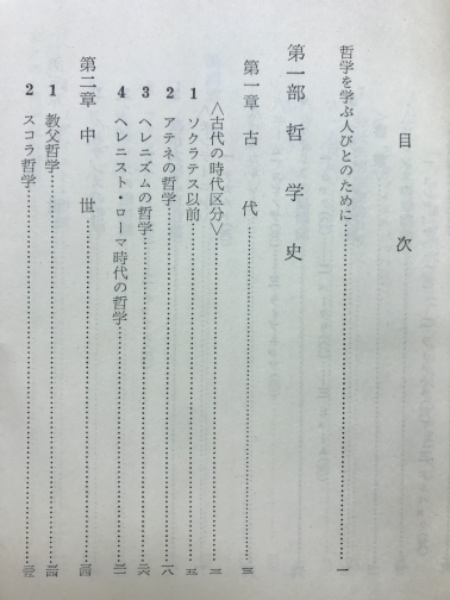 目次
哲学を学ぶ人びとのために……一
第一部 哲学史
第一章 古代……三
〈古代の時代区分〉……三
1 ソクラテス以前……五
2 アテネの哲学……一八
3 ヘレニズムの哲学……二六
4 ヘレニスト・ローマ時代の哲学……三一
第二章 中世……三四
1 教父哲学……三四
2 スコラ哲学